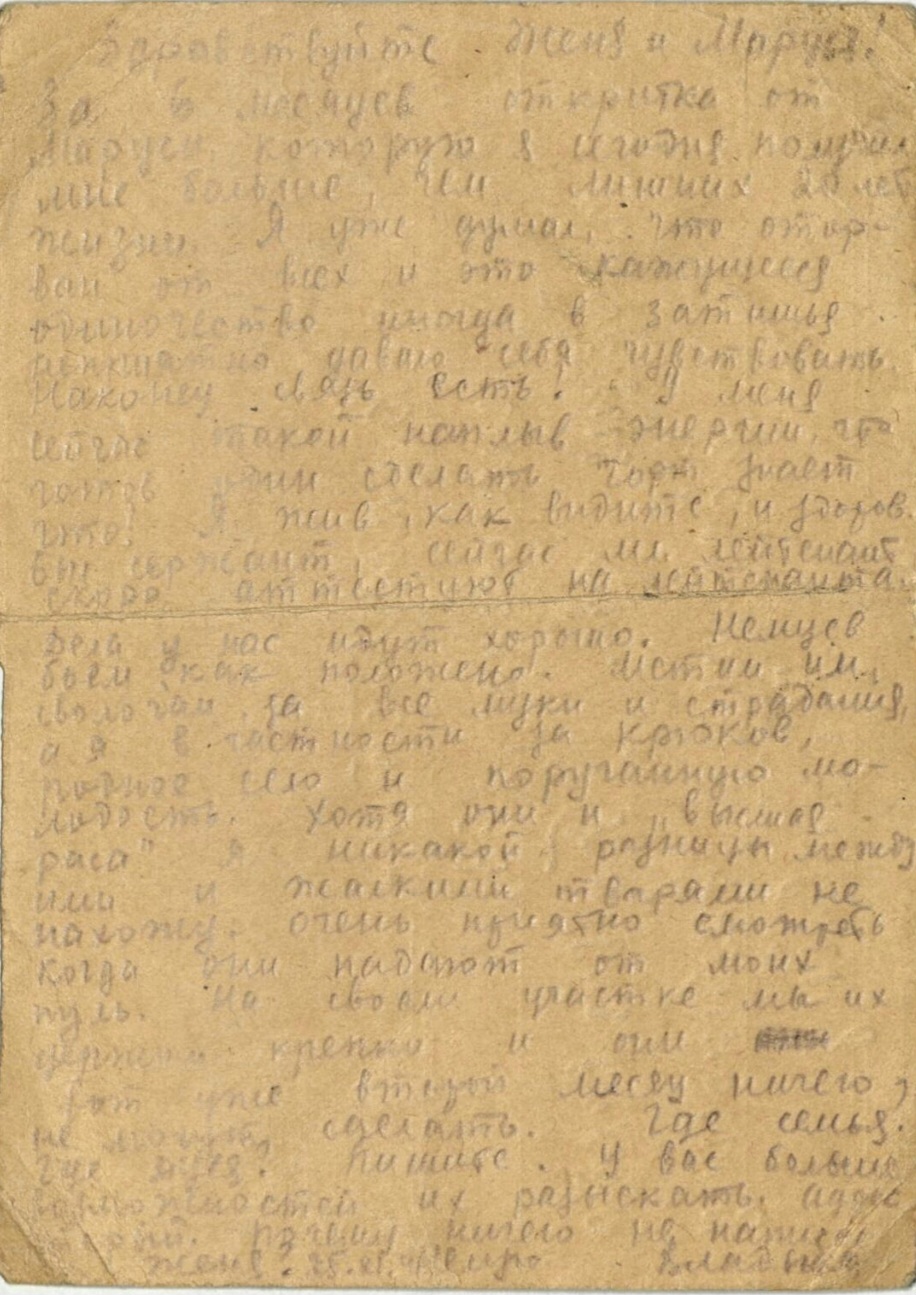 Здравствуйте Женя и Маруся!
За 6 месяцев открытка от
Маруси, которую я сегодня получил
мне больше, чем лишних 20 лет
жизни. Я уже думал, что отор-
ван от всех и это кажущееся
одиночество иногда в затишья
давало себя чувствовать.
Наконец связь есть! У меня
сейчас такой наплыв энергии, что
готов один сделать чорт знает
что! Я жив, как видите, и здоров.
был сержант, сейчас мл. лейтенант
скоро аттестуют на лейтенанта.
Дела у нас идут хорошо. Немцев
бьем как положено. Мстим им,
сволочам, за все муки и страдания,
а я в частности за Крюков,
родное село и поруганную мо-
лодость. Хотя они и „высшая
раса" я никакой разницы между
ими и жалкими тварями не
нахожу. Очень приятно смотреть
когда они падают от моих
пуль. На своем участке мы их
держим крепко и они
вот уже второй месяц ничего
не могут сделать. Где семья.
Где Пишите. У вас больше
возможностей их разыскать.
Почему ничего не
Жене?